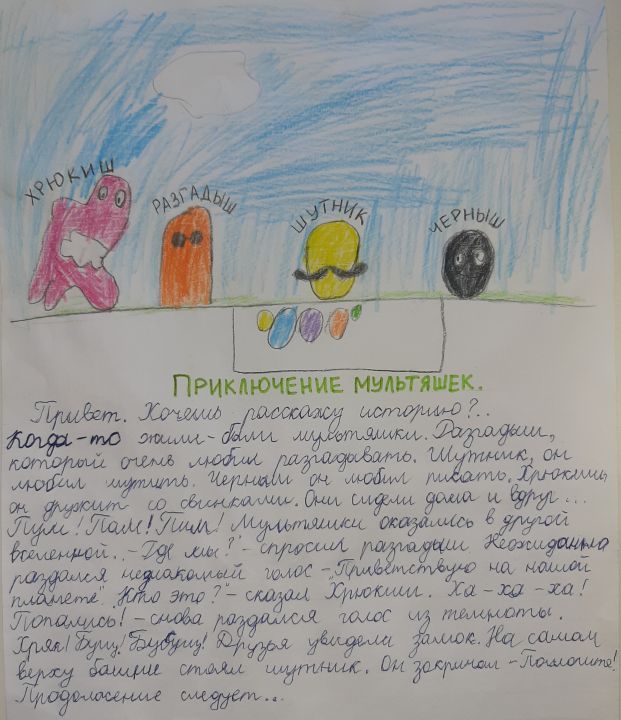 ХРЮКИШ
РАЗГАДЫШ
ШУТНИК
ЧЕРНЫШ
ПРИКЛЮЧЕНИЕ МУЛЬТЯШЕК.
Привет. Хочешь расскажу историю?..
Когда-то жили-были мультяшки. Разгадыш,
который очень любил разгадывать. Шутник, он
любил шутить. Черныш он любил писать. Хрюкишь
он дружит со свинками. Они сидели дома и вдруг...
Пум! Пам! Пим! Мультяшки оказались в другой
вселенной. -"Где мы?"- спросил разгадыш. Неожиданна
раздался незнакомый голос -"Приветствую на нашой
планете". "Кто это?"- сказал Хрюкиш. Ха-ха-ха!
Попались! - снова раздался голос из темноты.
Хряк! Бущ! Бубущ! Друзья увидели замок. На самом
верху башне стоял шутник. Он закричал - Памагите!
Продолжение следует...